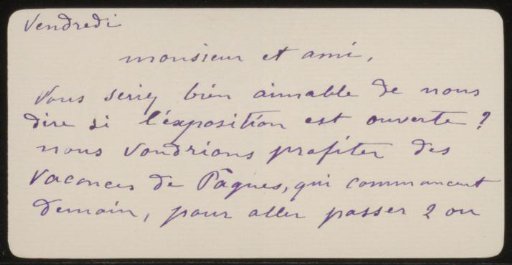 Vendredi
monsieur et ami,
Vous seriez bien aimable de nous
dire si l'éxposition est ouverte ?
nous voudrions profiter des
vacances de Pâques, qui commencent
demain, pour aller passer 2 ou